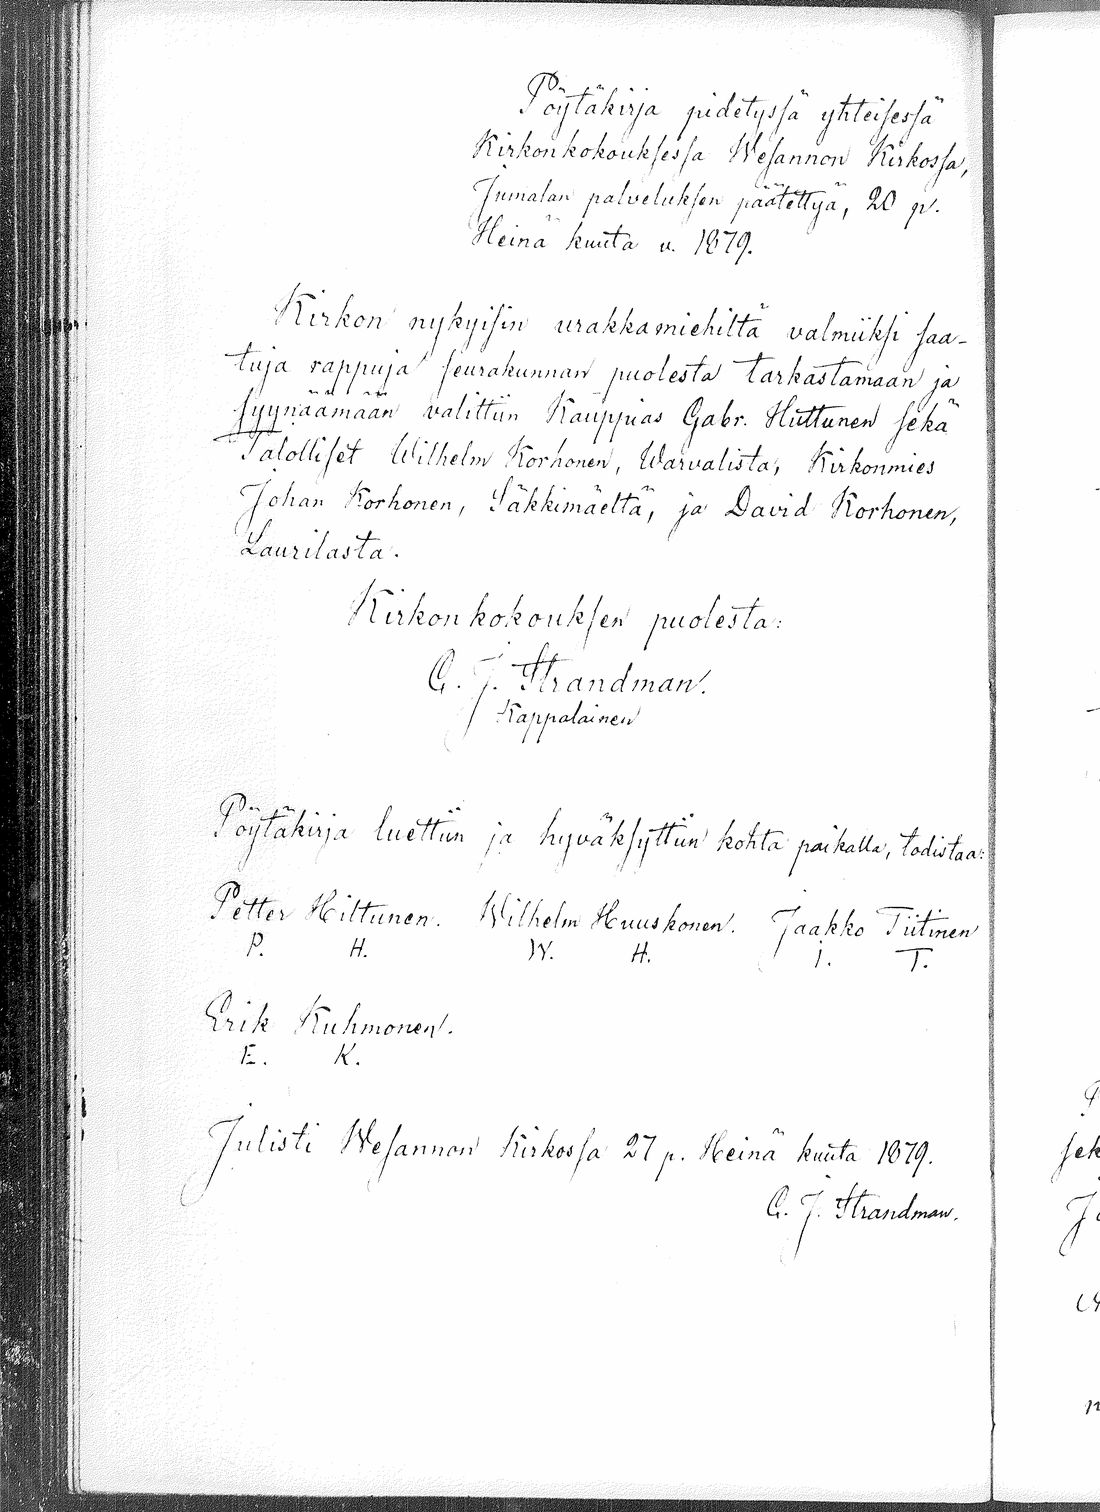 Pöytäkirja pidetyssä yhteisessä
Kirkonkokouksessa Wesannon Kirkossa,
Jumalan palveluksen päätettyä, 20 p.
Heinä kuuta v. 1879.
Kirkon nykyisin urakkamiehiltä valmiiksi saa-
tuja rappuja seurakunnan puolesta tarkastamaan ja
syynäämään valittiin Kauppias Gabr. Huttunen sekä
Talolliset Wilhelm Korhonen, Warvalista, Kirkonmies
Johan Korhonen, Säkkimäeltä, ja David Korhonen,
Laurilasta.
Kirkonkokouksen puolesta:
G. J. Strandman.
Kappalainen
Pöytäkirja luettiin ja hyväksyttiin kohta paikalla, todistaa:
Petter Hiltunen. Wilhelm Huuskonen. Jaakko Tiitinen
P. H. W. H. J. T.
Erik Kuhmonen.
E. K.
Julisti Wesannon Kirkossa 27 p. Heinä kuuta 1879.
G. J. Strandman.